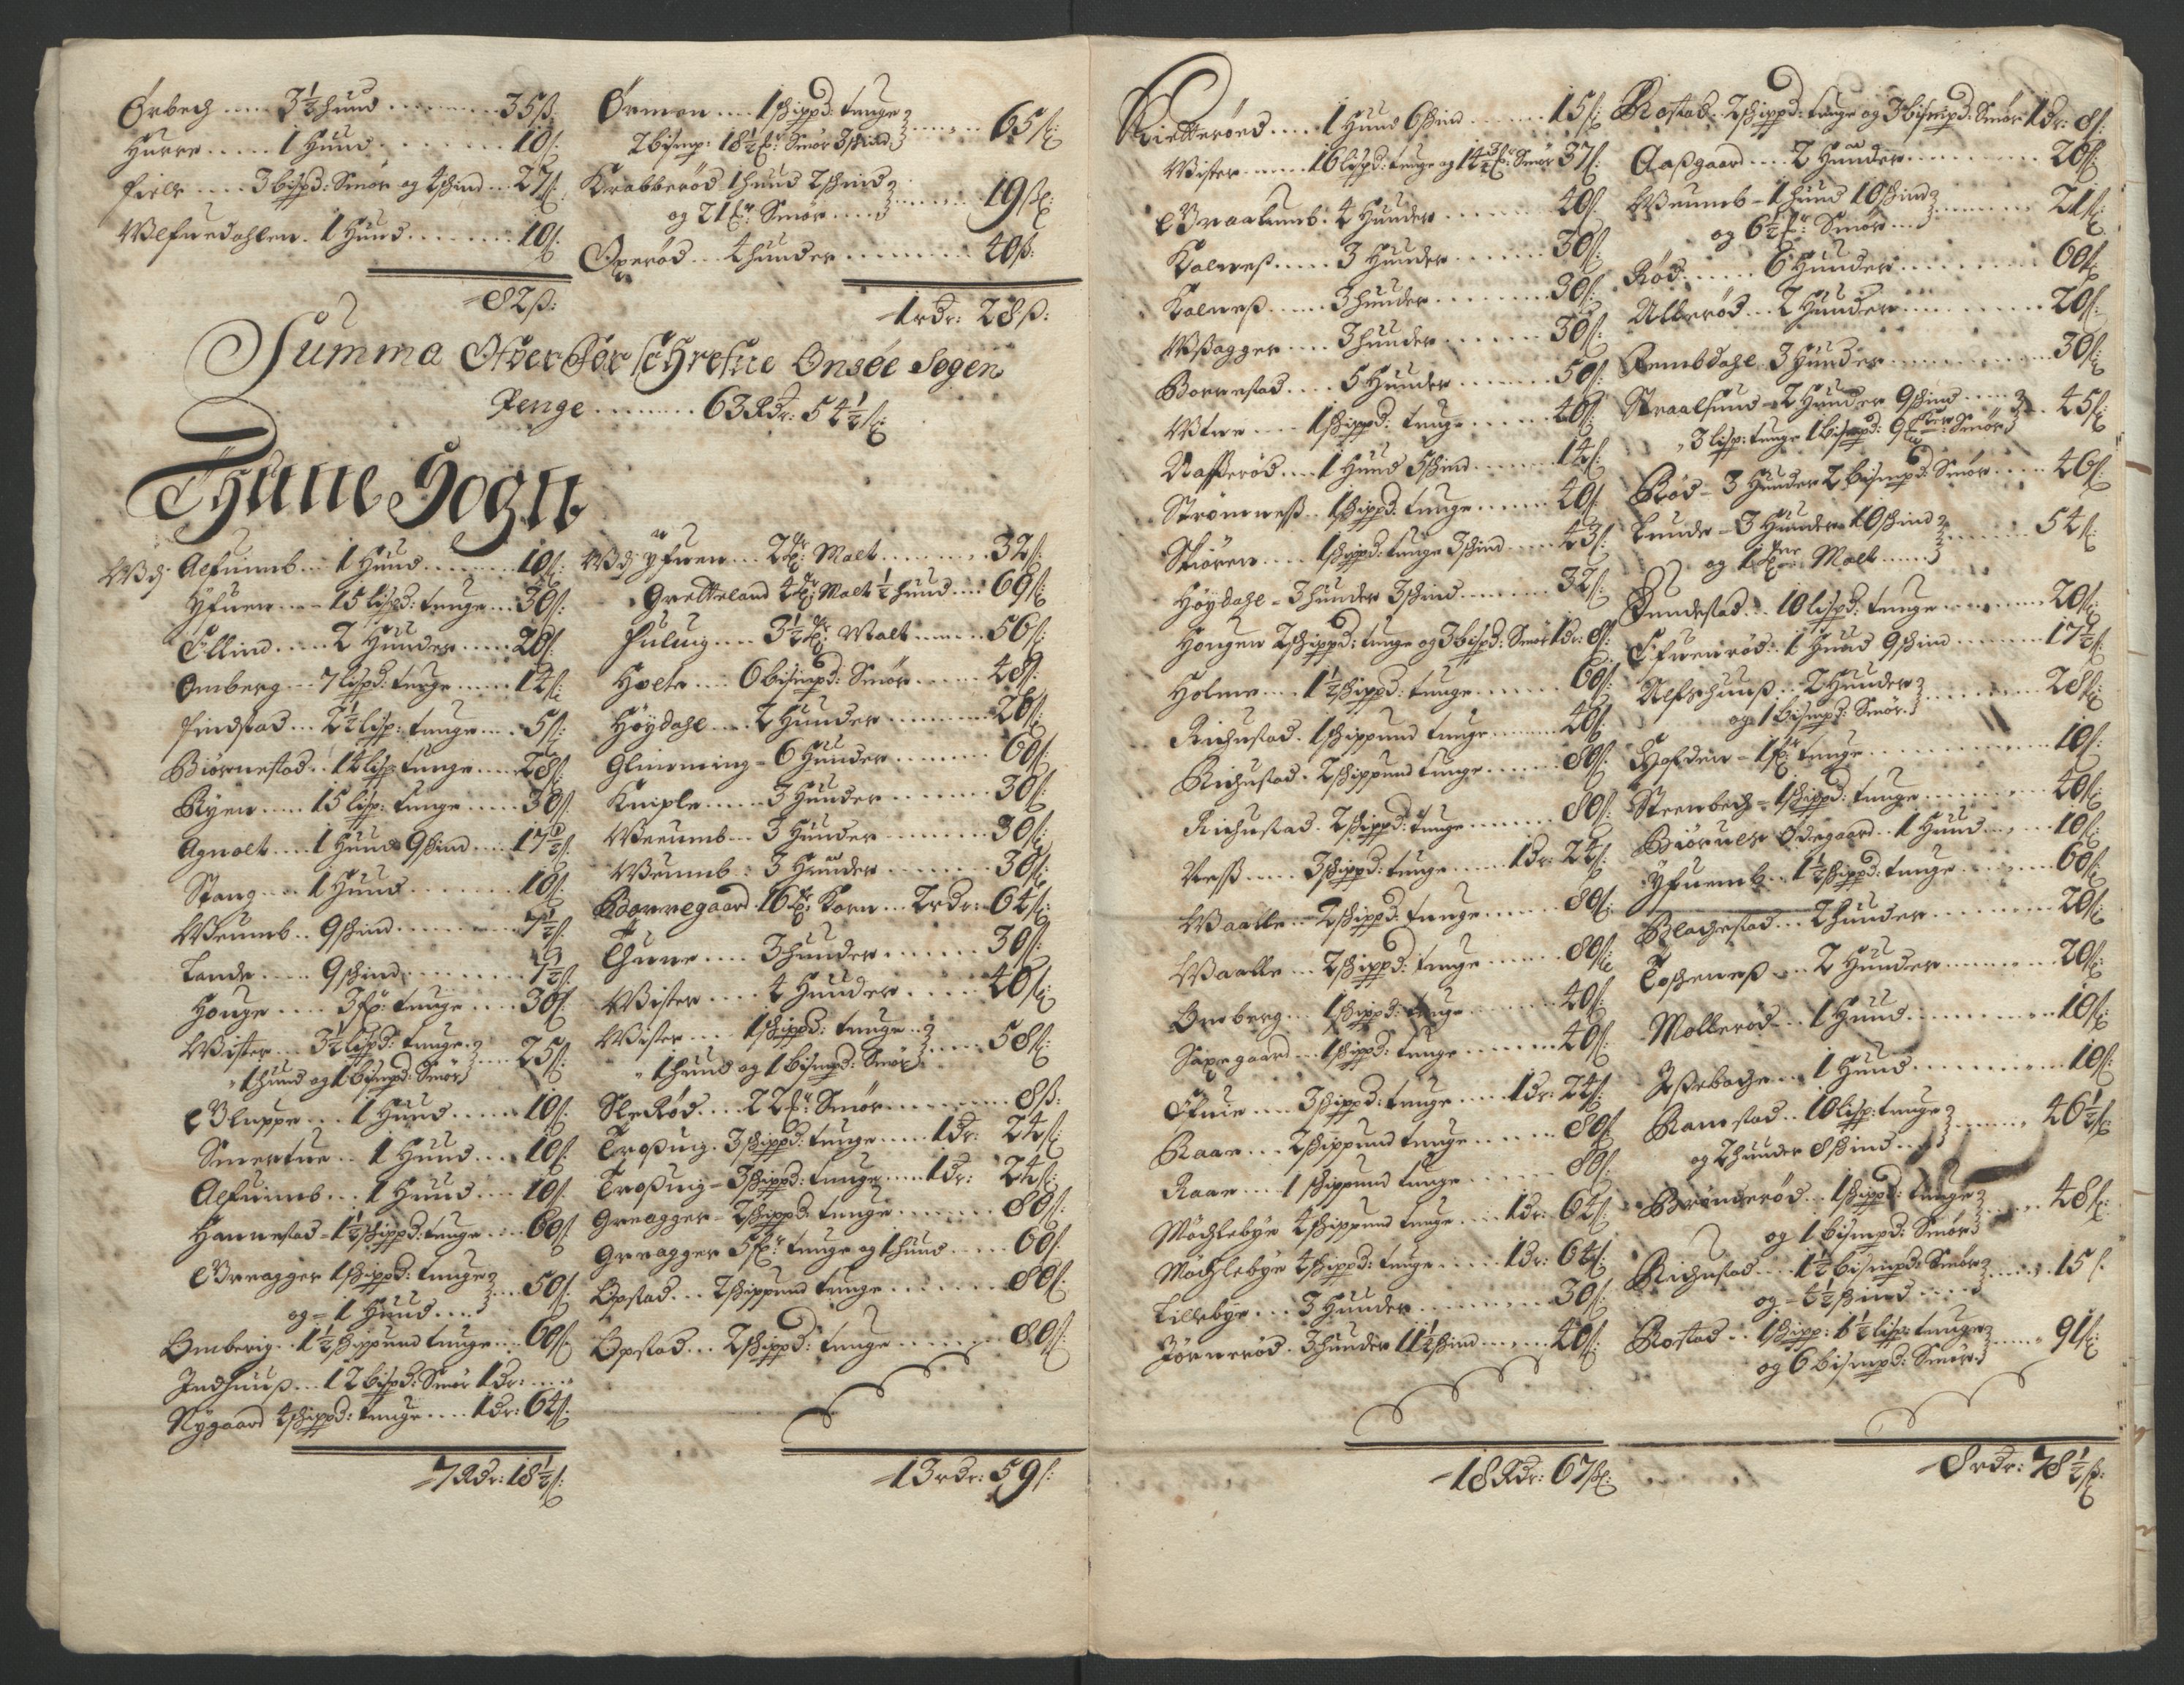 Ørbech .... 3½ hund ........ 35 ß:
Hurre ..... 1 Hund ........ 10 ß:
Fiele .... 3 bispd: Smør og 4 skind .. 27 ß:
Ulfuedahlen . 1 Hund ........ 10 ß:
82 ß:
Ørmen .... 1 skippd: tunge
2 bismp: 18½ Smør 3 skind ...... 65 ß:
Krabberød 1 hund 2 skind
og 21 Smør ..... 19 ß:
Operød ... 4 hunder ......... 40 ß:
1 rdr: 28 ß:
Summa Ofuer Schrefne Onsøe Sogen
Penge ........ 63 Rdr: 54½ ß:
Thune Sogn
Alfuimb .. 1 Hund ....... 10 ß:
Yfuen .... 15 lispd: tunge ... 30 ß:
Ellind ..... 2 Hunder ..... 20 ß:
Omberg ... 7 lispd: tunge ..... 14 ß:
Findstad ... 2½ lisp: tunge .... 5 ß:
Biørnestad .. 14 lisp: tunge .... 28 ß:
Ryen ..... 15 lisp: tunge ..... 30 ß:
Agnolt .... 1 Hund 9 skind .... 17½ ß:
Stang .... 1 Hund ........ 10 ß:
Weumb .. 9 skind ........ 7½ ß:
Lande ..... 9 skind ........ 7½ ß:
Houge ..... 3 tunge .... 30 ß:
Wister ... 3½ lispd: tunge
1 hund og 1 bismpd: Smør ... 25 ß:
Uluppe ... 1 Hund ...... 10 ß:
Smertue .. 1 Hund .... 10 ß:
Alfuimb ... 1 Hund .... 10 ß:
Hannestad - 1½ skippd: tunge ... 60 ß:
Greagger 1 skippd: tunge
og - 1 Hund .... 50 ß:
Omberig .. 1½ skippund tunge ... 60 ß:
Indhuuß ... 12 bispd: Smør 1 dr: ....
Nygaard 4 skippd: tunge .... 1 dr: 64 ß:
7 Rdr: 18½ ß:
Yfuen ... 2 Malt ......... 32 ß:
Gretteland 4 Malt ½ hund ... 69 ß:
Huluig .... 3½ Malt ...... 56 ß:
Holte .... 6 bismpd: Smør ...... 48 ß:
Høydahl .... 2 Hunder ......... 20 ß:
Glimming - 6 Hunder ......... 60 ß:
Kniple ...... 3 Hunder ........ 30 ß:
Weumb ... 3 Hunder ......... 30 ß:
Weumb : 3 Hunder ......... 30 ß:
Borregaard 16 Korn ... 2 rdr: 64 ß:
Thune .... 3 hunder ....... 30 ß:
Wister .... 4 Hunder ..... 40 ß:
Wister ... 1 skippd: tunge ..
1 hund og 1 bismpd: Smør .... 58 ß:
Slerød .... 22 Smør ......... 8 ß:
Troßuig . 3 skippd: tunge .... 1 dr: 24 ß:
Troßuig - 3 skippd: tunge .... 1 dr: 24 ß:
Greagger - 2 skippd: tunge ....... 80 ß:
Greagger 5 tunge og 1 hund .... 60 ß:
Opstad ... 2 skippund tunge ...... 80 ß:
Opstad ... 2 skippd: tunge ........ 80 ß:
13 rdr: 59 ß:
Kietterød .... 1 Hund 6 skind ....... 15 ß:
Wister .... 16 lispd: tunge og 14½ Smør 37 ß:
Braatumb . 4 Hunder ........ 40 ß:
Kalneß ..... 3 Hunder ........ 30 ß:
Kalneß ..... 3 hunder ........ 30 ß:
Wßagger .... 3 hunder ....... 30 ß:
Borrestad ... 5 Hunder ....... 50 ß:
Wtne .... 1 skippd: tunge ...... 40 ß:
Nafferød ... 1 Hund 5 skind ....... 14 ß:
Strømneß .. 1 skippd: tunge ...... 40 ß:
Skiøren .... 1 skippd: tunge 3 skind .... 43 ß:
Høydahl - 3 hunder 3 skind ....... 32 ß:
Hougen 2 skippd: tunge og 3 bispd: Smør 1 dr: 8 ß:
Holme .... 1½ skippd: tunge ....... 60 ß:
Richustad . 1 skippund tunge ...... 40 ß:
Richustad . 2 skippund tunge ...... 80 ß:
Richustad . 2 skippd: tunge ....... 80 ß:
Neß ..... 3 skippd: tunge .... 1 dr: 24 ß:
Waalle ... 2 skippd: tunge ....... 80 ß:
Waalle ... 2 skippd: tunge ....... 80 ß:
Omberg ... 1 skippd: tunge ....... 40 ß:
Saxegaard ... 1 skippd: tunge ....... 40 ß:
Ofuie .... 3 skippd: tunge .... 1 dr: 24 ß:
Raae ... 2 skippund tunge ...... 80 ß:
Raae .... 1 skippund tunge ...... 80 ß:
Mochlebye 4 skippund tunge .... 1 dr: 64 ß:
Mochlebye 4 skippd: tunge ..... 1 dr: 64 ß:
Lillebye ... 3 Hunder ......... 30 ß:
Jørnerød . 3 hunder 11½ skind ..... 40 ß:
18 Rdr: 67 ß:
Rostad . 2 skippd: tunge og 3 bismpd: Smør 1 dr: 8 ß:
Aaßgaard .... 2 Hunder ......... 20 ß:
Weumb - 1 hund 10 skind
og 6½ Smør .... 21 ß:
Rød ...... 6 Hunder ......... 60 ß:
Ulberød ... 2 Hunder ......... 20 ß:
Rembdahl 3 Hunder ......... 30 ß:
Straalsund - 2 Hunder 9 skind .....
3 lisp: tunge 1 bismpd: 9 Smør 45 ß:
Rød - 3 Hunder 2 bismpd: Smør ..... 46 ß:
Lunde - 3 Hunder 10 skind
og 1 Malt ...... 54 ß:
Rundestad ... 10 lispd: tunge ....... 20 ß:
Efuenrød .. 1 Hund 9 skind ....... 17½ ß:
Alfshuuß ... 2 Hunder
og 1 bismpd: Smør .. 28 ß:
Hafslen - 1 tunge ......... 10 ß:
Steenbech - 1 skippd: tunge ....... 40 ß:
Biørnes Ødegaard .. 1 Hund ..... 10 ß:
Yfuenb .. 1½ skippd: tunge ....... 60 ß:
Blachestad ... 2 hunder ......... 20 ß:
Toßeneß .... 2 Hunder ......... 20 ß:
Mollerød ... 1 Hund ......... 10 ß:
Ißebache ... 1 Hund ......... 10 ß:
Ramstad .. 10 lisp: tunge
og 2 hunder 8 skind .... 46½ ß:
Brønderød .. 1 skippd: tunge
og 1 bismpd: Smør ..... 48 ß:
Richustad .... 1½ bismpd: Smør
og - 4½ skind .... 15 ß:
Rostad .. 1 skipp: 1½ lisp: tunge
og 6 bismpd: Smør .... 91 ß:
8 rdr: 78½ ß: